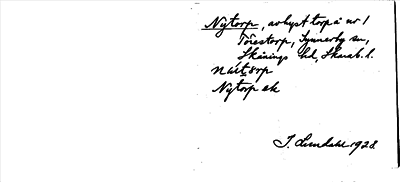 Nytorp, avhyst torp å nr 1
Torestorp, Synnerby sn,
Skånings hd, Skarab. l.
Nytorp ek
J. Lundahl 1928